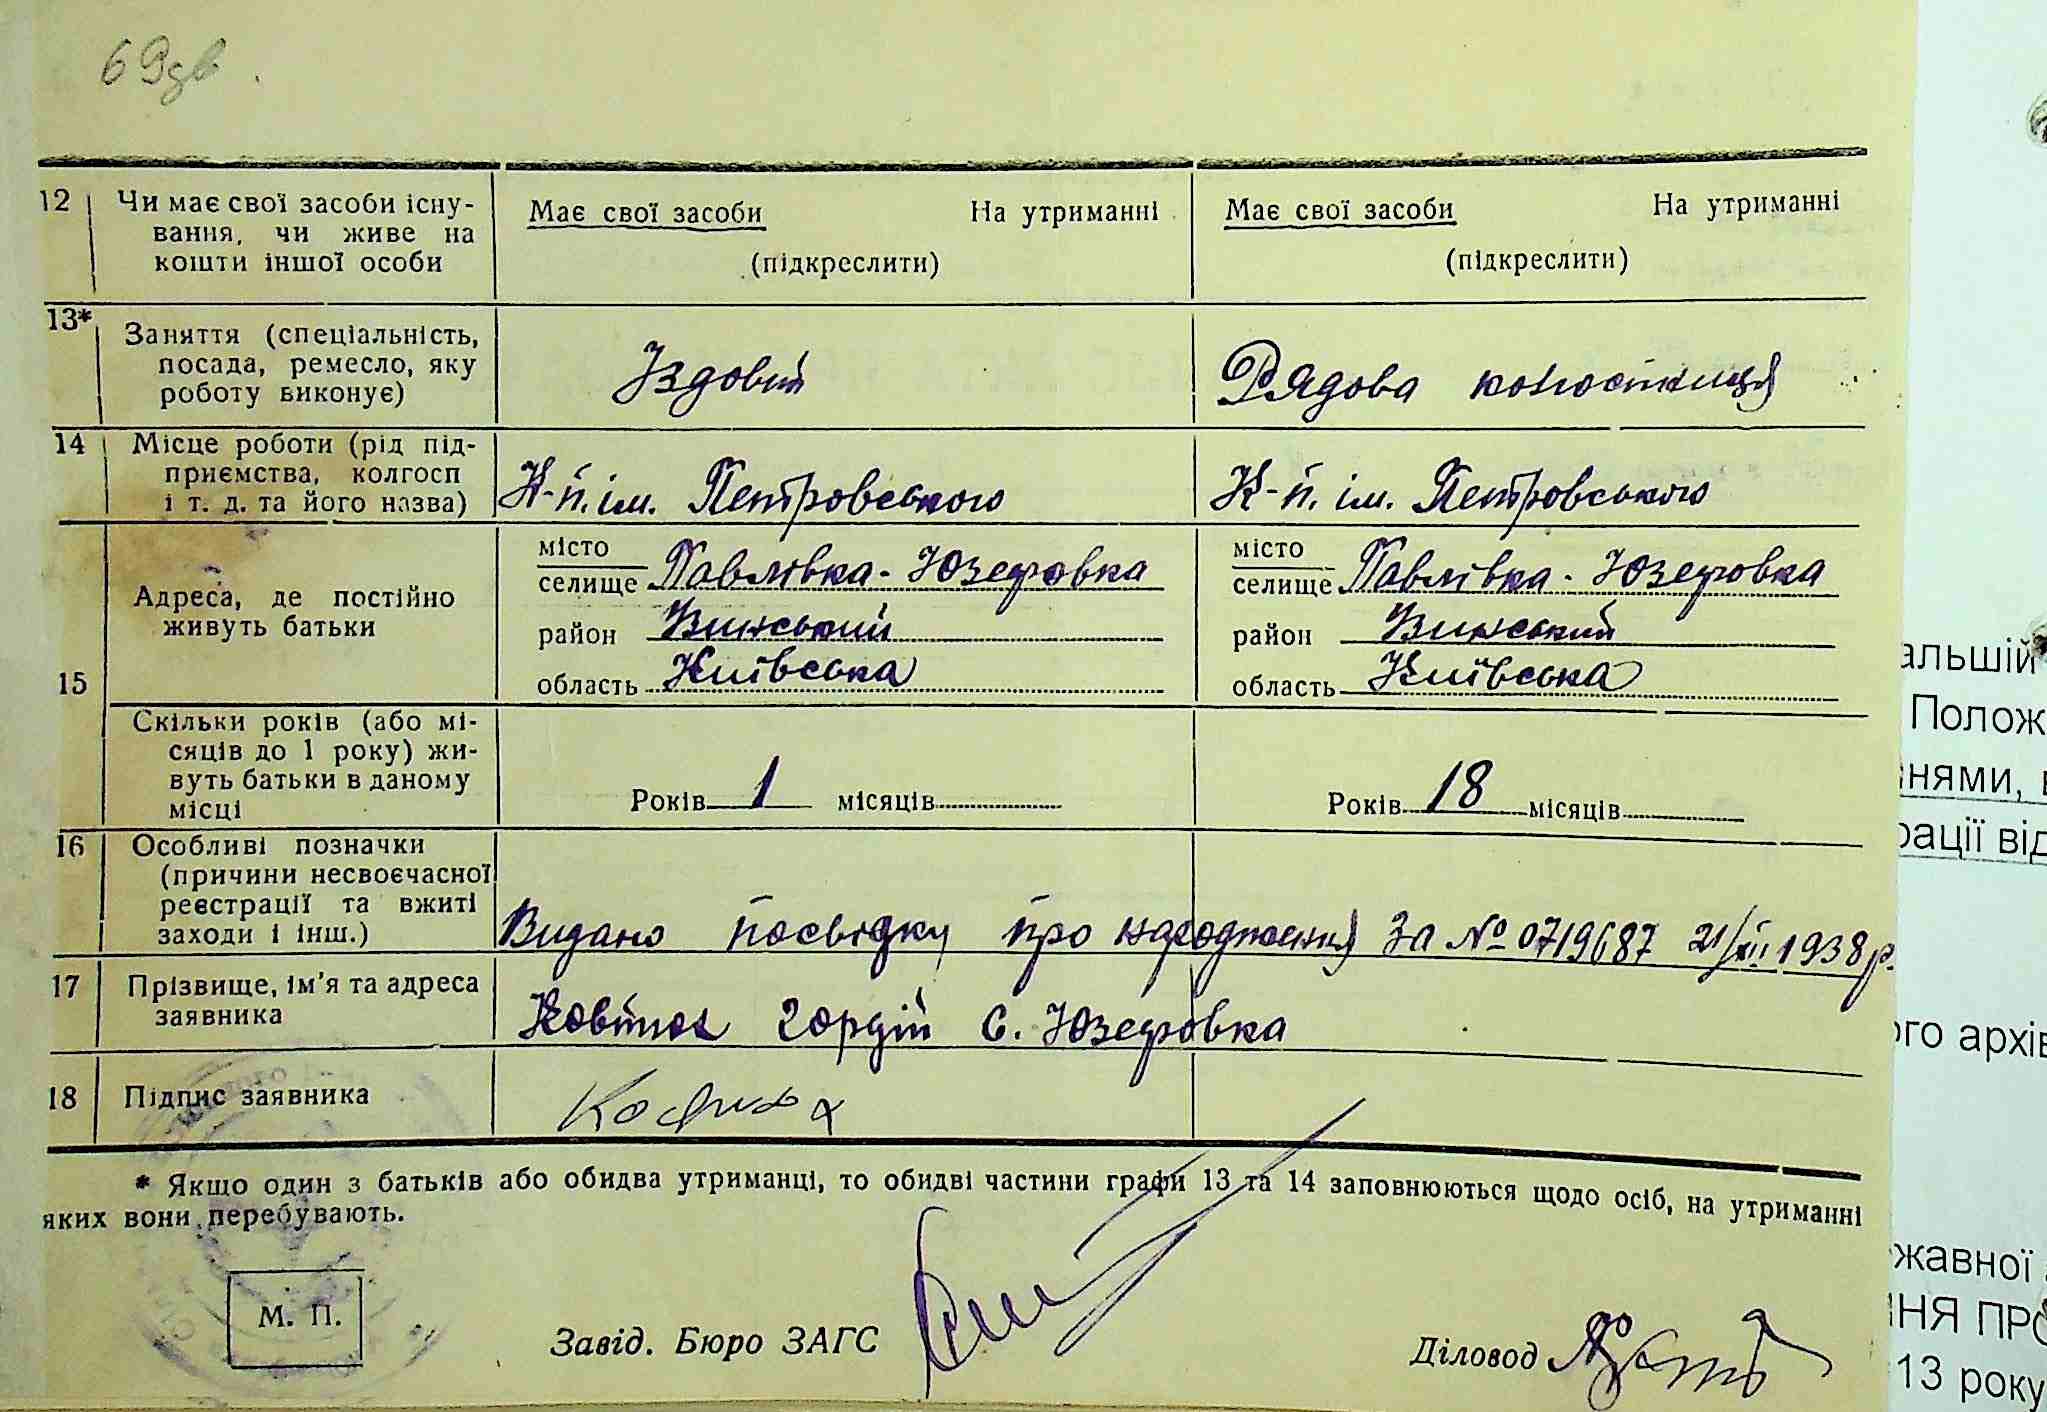 69зв.
12 Чи має свої засоби існу-
вання, чи живе на
кошти іншої особи
Має свої засоби На утриманні
(підкреслити)
Має свої засоби На утриманні
(підкреслити)
13* Заняття (спеціальність,
посада, ремесло, яку
роботу виконує)
Їздовий
Рядова колгоспниця
14 Місце роботи (рід під-
приємства, колгосп
і т. д. та його назва)
К-п. ім. Петровського
К-п. ім. Петровського
15 Адреса, де постійно
живуть батьки
місто
селище Павлівка-Юзефовка
район
область Київська
місто
селище Павлівка-Юзефовка
район
область Київська
Скільки років (або мі-
сяців до 1 року) жи-
вуть батьки в даному
місці
Років 1 місяців
Років 18 місяців
16 Особливі позначки
(причини несвоєчасної
реєстрації та вжиті
заходи і інш.)
Видано посвідку про народження За № 0719687 21/XII 1938 р.
17 Прізвище, ім'я та адреса
заявника
Ковтюх Гордій с. Юзефовка
18 Підпис заявника
* Якщо один з батьків або обидва утриманці, то обидві частини графи 13 та 14 заповнюються щодо осіб, на утриманні
яких вони перебувають.
М. П.
Завід. Бюро ЗАГС
Діловод
альшій
Полож
нями, в
рації від
ого архів
жавної
ННЯ ПРО
13 року